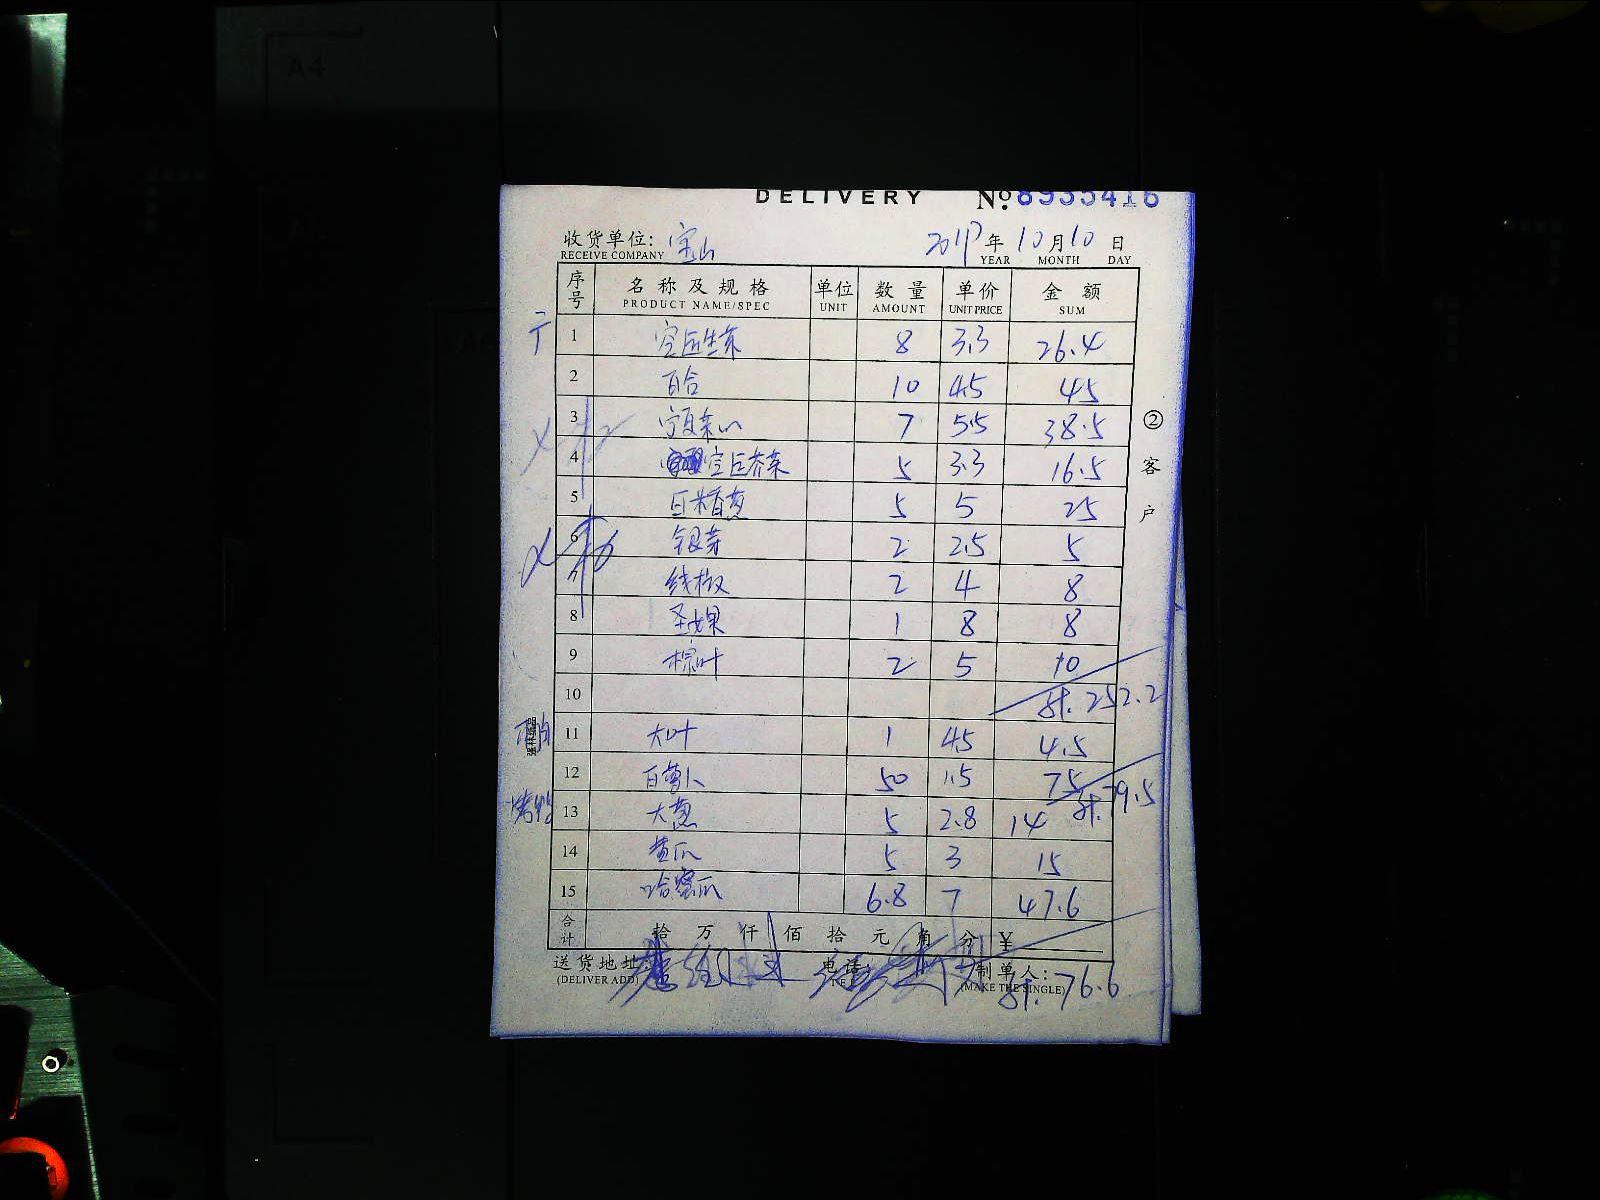 A4
DELIVERY №8935416
收货单位: 宝山 2017年10月10日
RECEIVE COMPANY YEAR MONTH DAY
序号 名称及规格 单位 数量 单价 金额
PRODUCT NAME/SPEC UNIT AMOUNT UNIT PRICE SUM
1 8 3.3 26.4
2 百合 10 4.5 45
3 宁夏菜心 7 5.5 38.5
4 5 3.3 16.5
5 5 5 25
6 银芽 2 2.5 5
7 线椒 2 4 8
8 圣女果 1 8 8
9 棕叶 2 5 10
10 计. 252.2
11 大叶 1 4.5 4.5
12 白萝卜 50 1.5 75 计. 79.5
13 大葱 5 2.8 14
14 黄瓜 5 3 15
15 哈密瓜 6.8 7 47.6
合计 拾 万 仟 佰 拾 元 角 分 ¥
送货地址: 电话: 制单人:
(DELIVER ADD) TEL (MAKE THE SINGLE) 计. 76.6
②客户
烤鸭